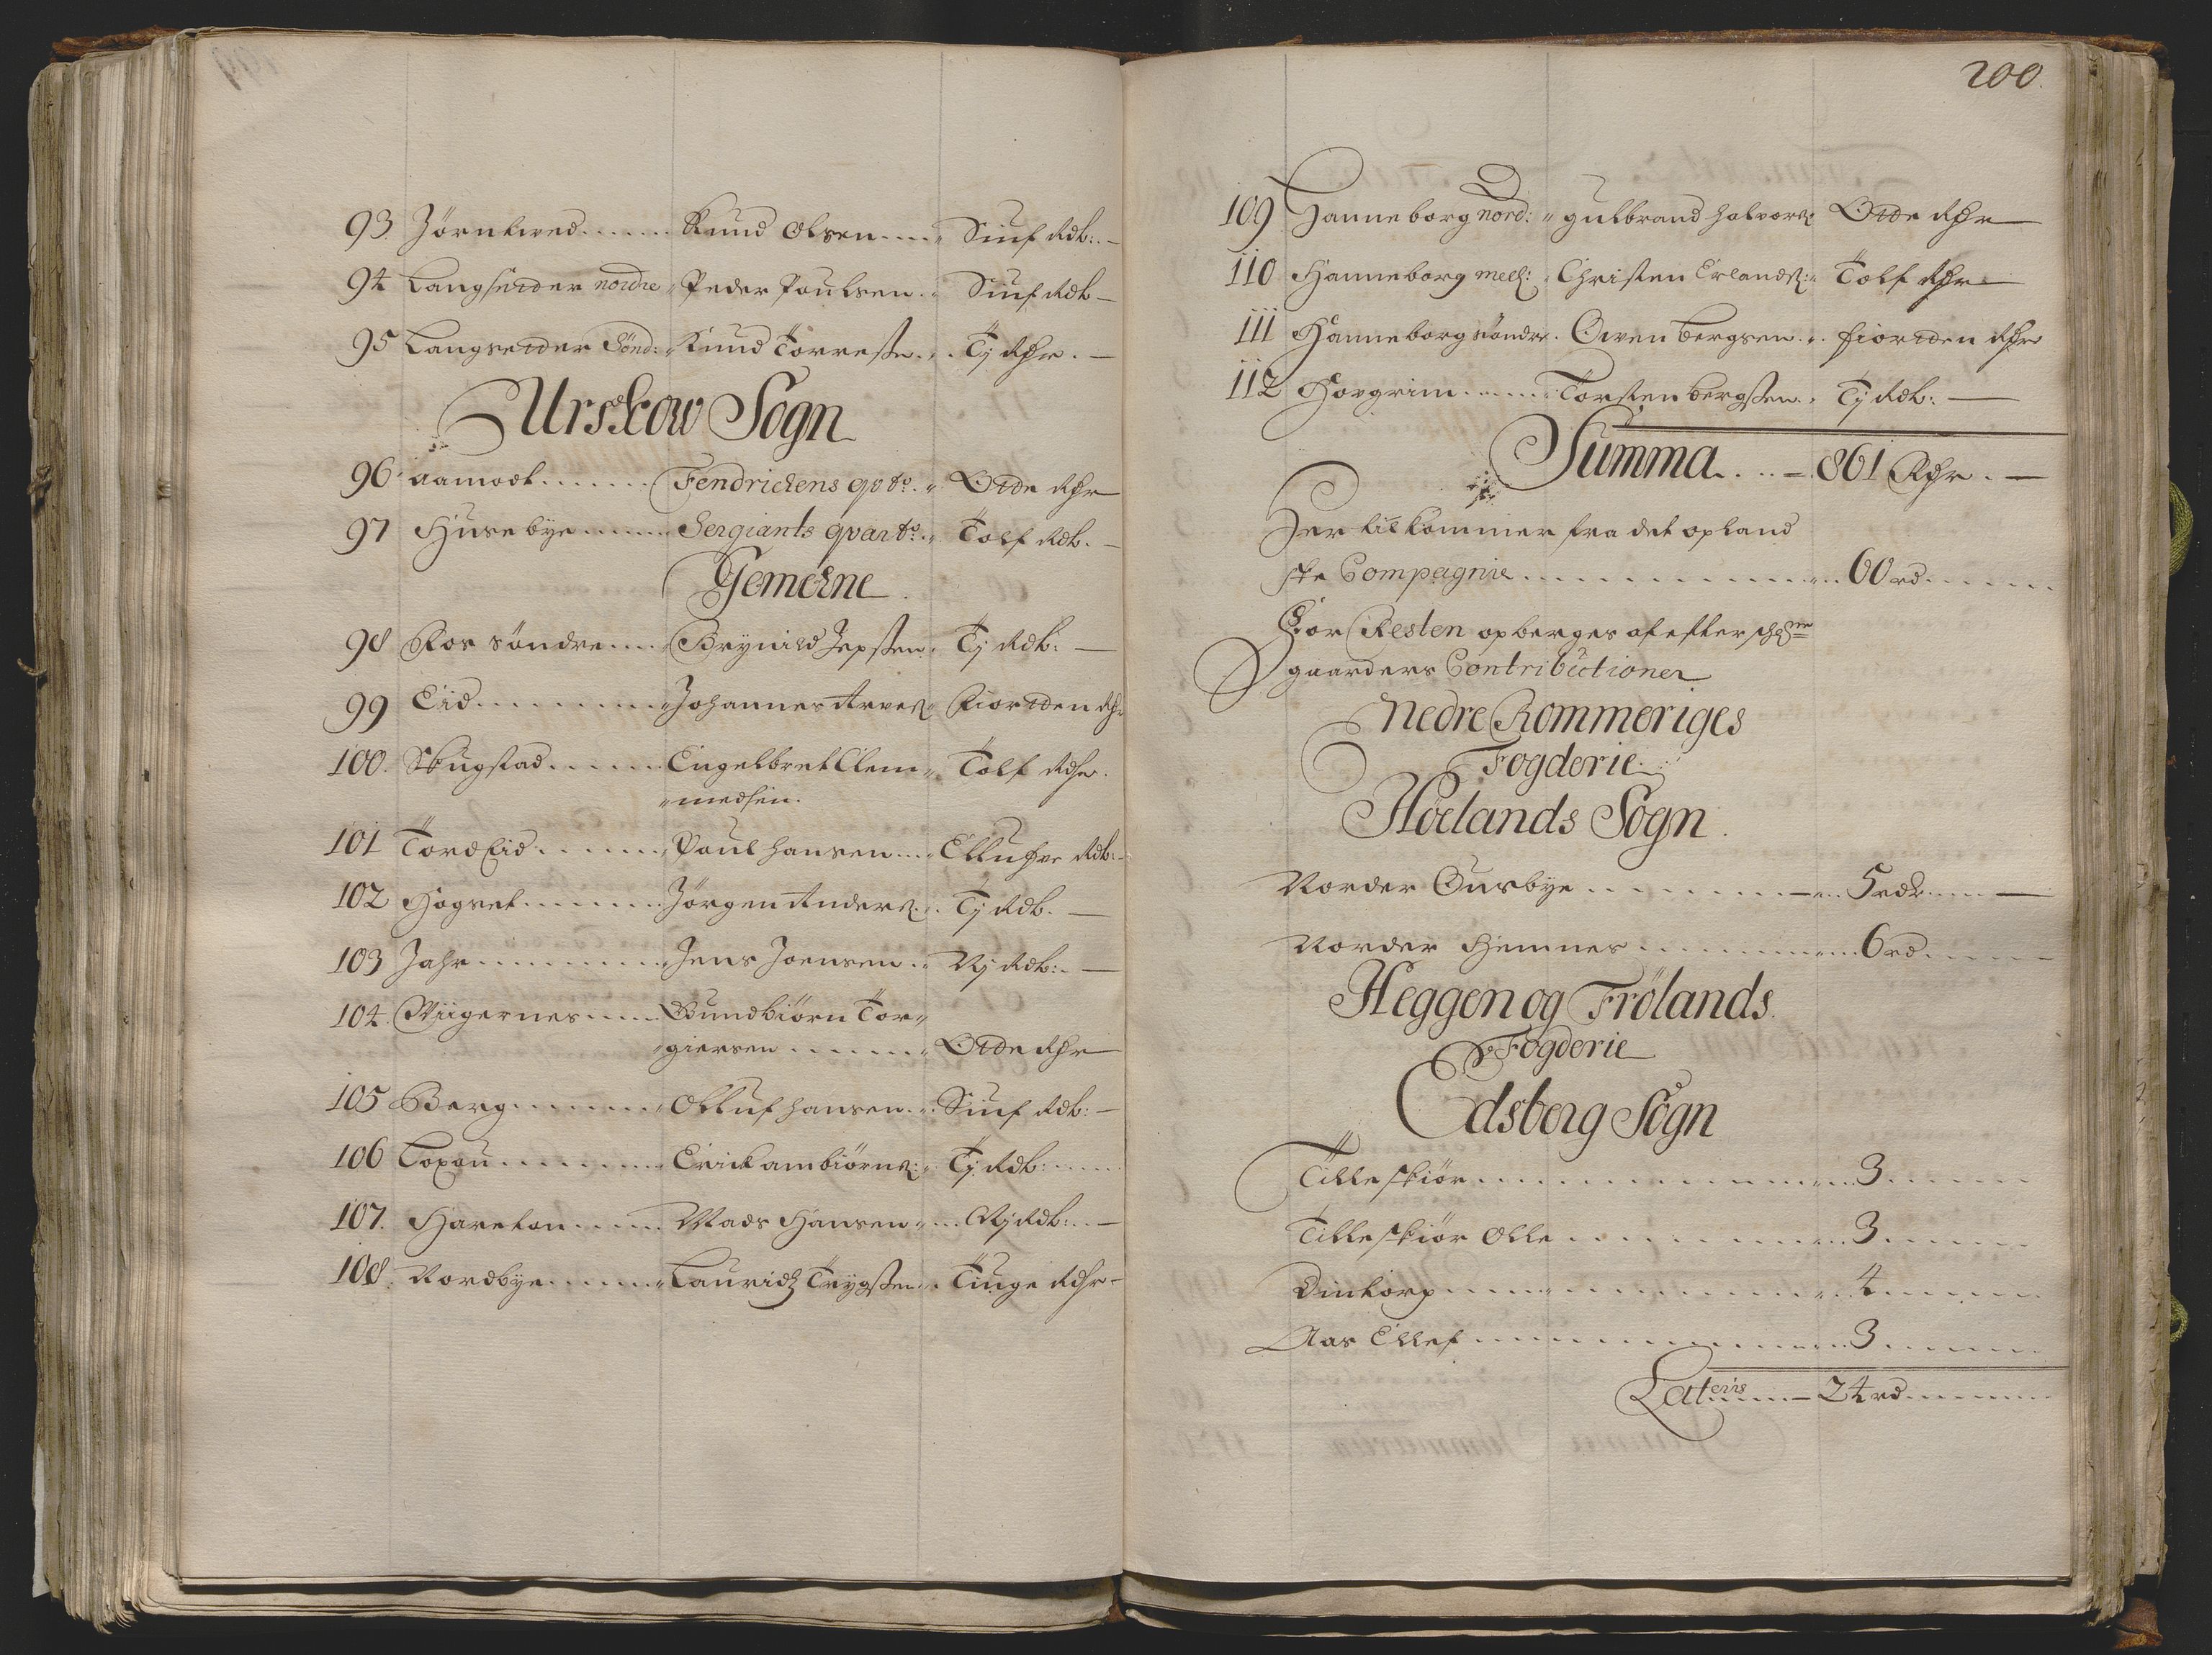 93. Jörnkved ...... Knud Olsen .... Siuf Rdlr: —
94 Langsetter nordre " Peder Poulsen .. Siuf Rdlr —
95 Langsetter Sönd: " Knud Torresßn .. Tj Rdlr. —
Urskow Sogn
96. aamodt ....... Fendrickens qvto. .. Otte Rdlr —
97 Husebye ...... Sergiants qvarto. .. Tolf Rdlr. —
Gemeene.
98 Roos söndre .... Brynild Jepsßen. Tj Rdlr. —
99 Eid ......... Johannes Arveß Fiorten Rdlr
100. Skugstad ...... Engelbret Clem" Tolf Rdlr.
" medsen.
101 Tord Eid ....... Poul Hansen ... Ellufve Rdlr:
102 Hogset ....... Jörgen Anderß .. Tj Rdlr. —
103 Jahr ......... Jens Joensen .. Nj Rdlr: —
104. Wiigernes ..... Gundbiörn Tor"
" giersen ....... Otte Rdlr —
105 Berg ........ Olluf Hansen .. Siuf Rdlr: —
106 Toxou ........ Erick ambiörnß: Tj Rdlr: ....
107. Hareton ..... Mads Hansen ... Nj Rdlr: . —
108. Nordbye ...... Lauridtz Trygsßen .. Tiuge Rdlr —
200.
109 Hanneborg nord: " gulbrand halvorß: Otte Rdlr —
110 Hanneborg mell: " Christen Erlandß: Tolf Rdlr —
111 Hanneborg söndre. Oven bergsen .. fiorten Rdlr
112 Hovgrim ...... Torsten bergsßen .. Tj Rdlr: —
Summa ... 861 Rdlr. —
Her til kommer fra det opland
ske Compagnie .............. 60 rd .....
For Resten opberges af efter schne
gaarders Contributioner
Nedre Rommeriges
Fogderie
Höelands Sogn.
Norder Ousbye .......... 5 rdlr ....
Norder Hemnes .......... 6 rd .....
Heggen og Frölands.
Fogderie
Edsberg Sogn
Tilleskiör ............. 3 .....
Tilleskiör Olle .......... 3 .....
Dintorp ............... 4 .....
Aas Ellef .............. 3 .....
Lateris .... 24 rd .....